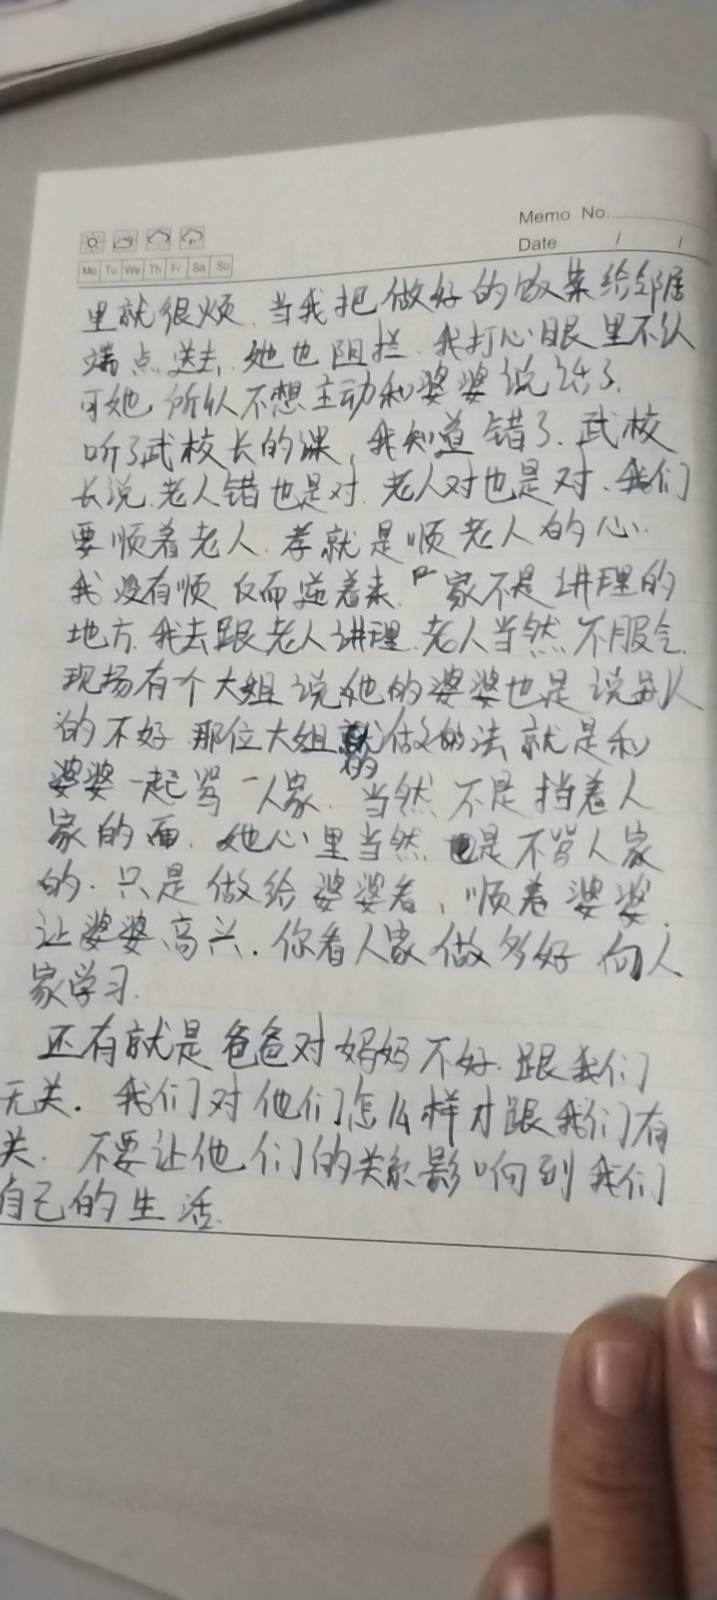 Memo No.
Date / /
Mo Tu We Th Fr Sa Su
里就很烦.当我把做好的饭菜给邻居
端点送去,她也阻拦.我打心眼里不认
可她,所以不想主动和婆婆说话了.
听了武校长的课,我知道错了.武校
长说.老人错也是对.老人对也是对.我们
要顺着老人.孝就是顺老人的心.
我没有顺 反而逆着来."家不是讲理的
地方.我去跟老人讲理.老人当然不服气.
现场有个大姐说她的婆婆也是说别人
的不好 那位大姐 做的法就是和
婆婆一起骂人家.当然不是挡着人
家的面.她心里当然 是不骂人家
的.只是做给婆婆看,顺着婆婆.
让婆婆高兴.你看人家做多好 向人
家学习.
还有就是爸爸对妈妈不好.跟我们
无关.我们对他们怎么样才跟我们有
关.不要让他们的关系影响到我们
自己的生活.